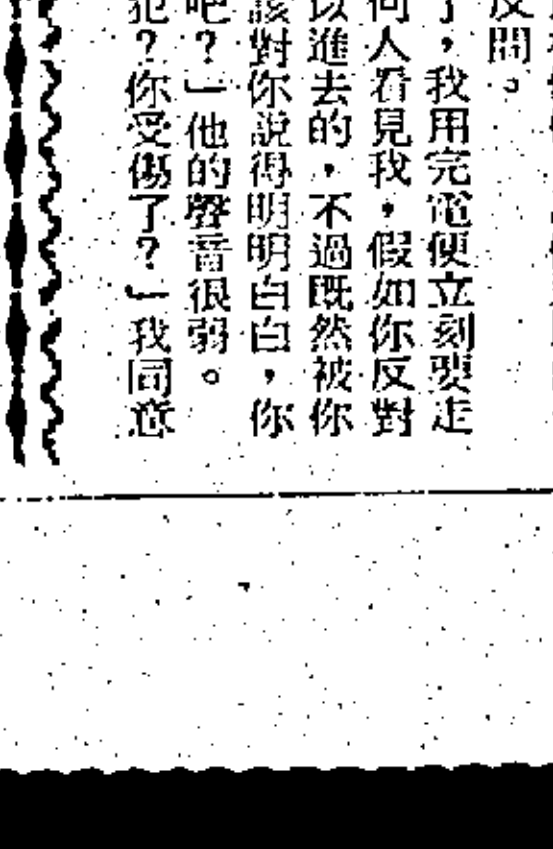 反問。
了，我用完電便立刻要走
何人看見我，假如你反對
以進去的，不過既然被你
該對你說得明明白白，你
吧？」他的聲音很弱。
犯？你受傷了？」我同意